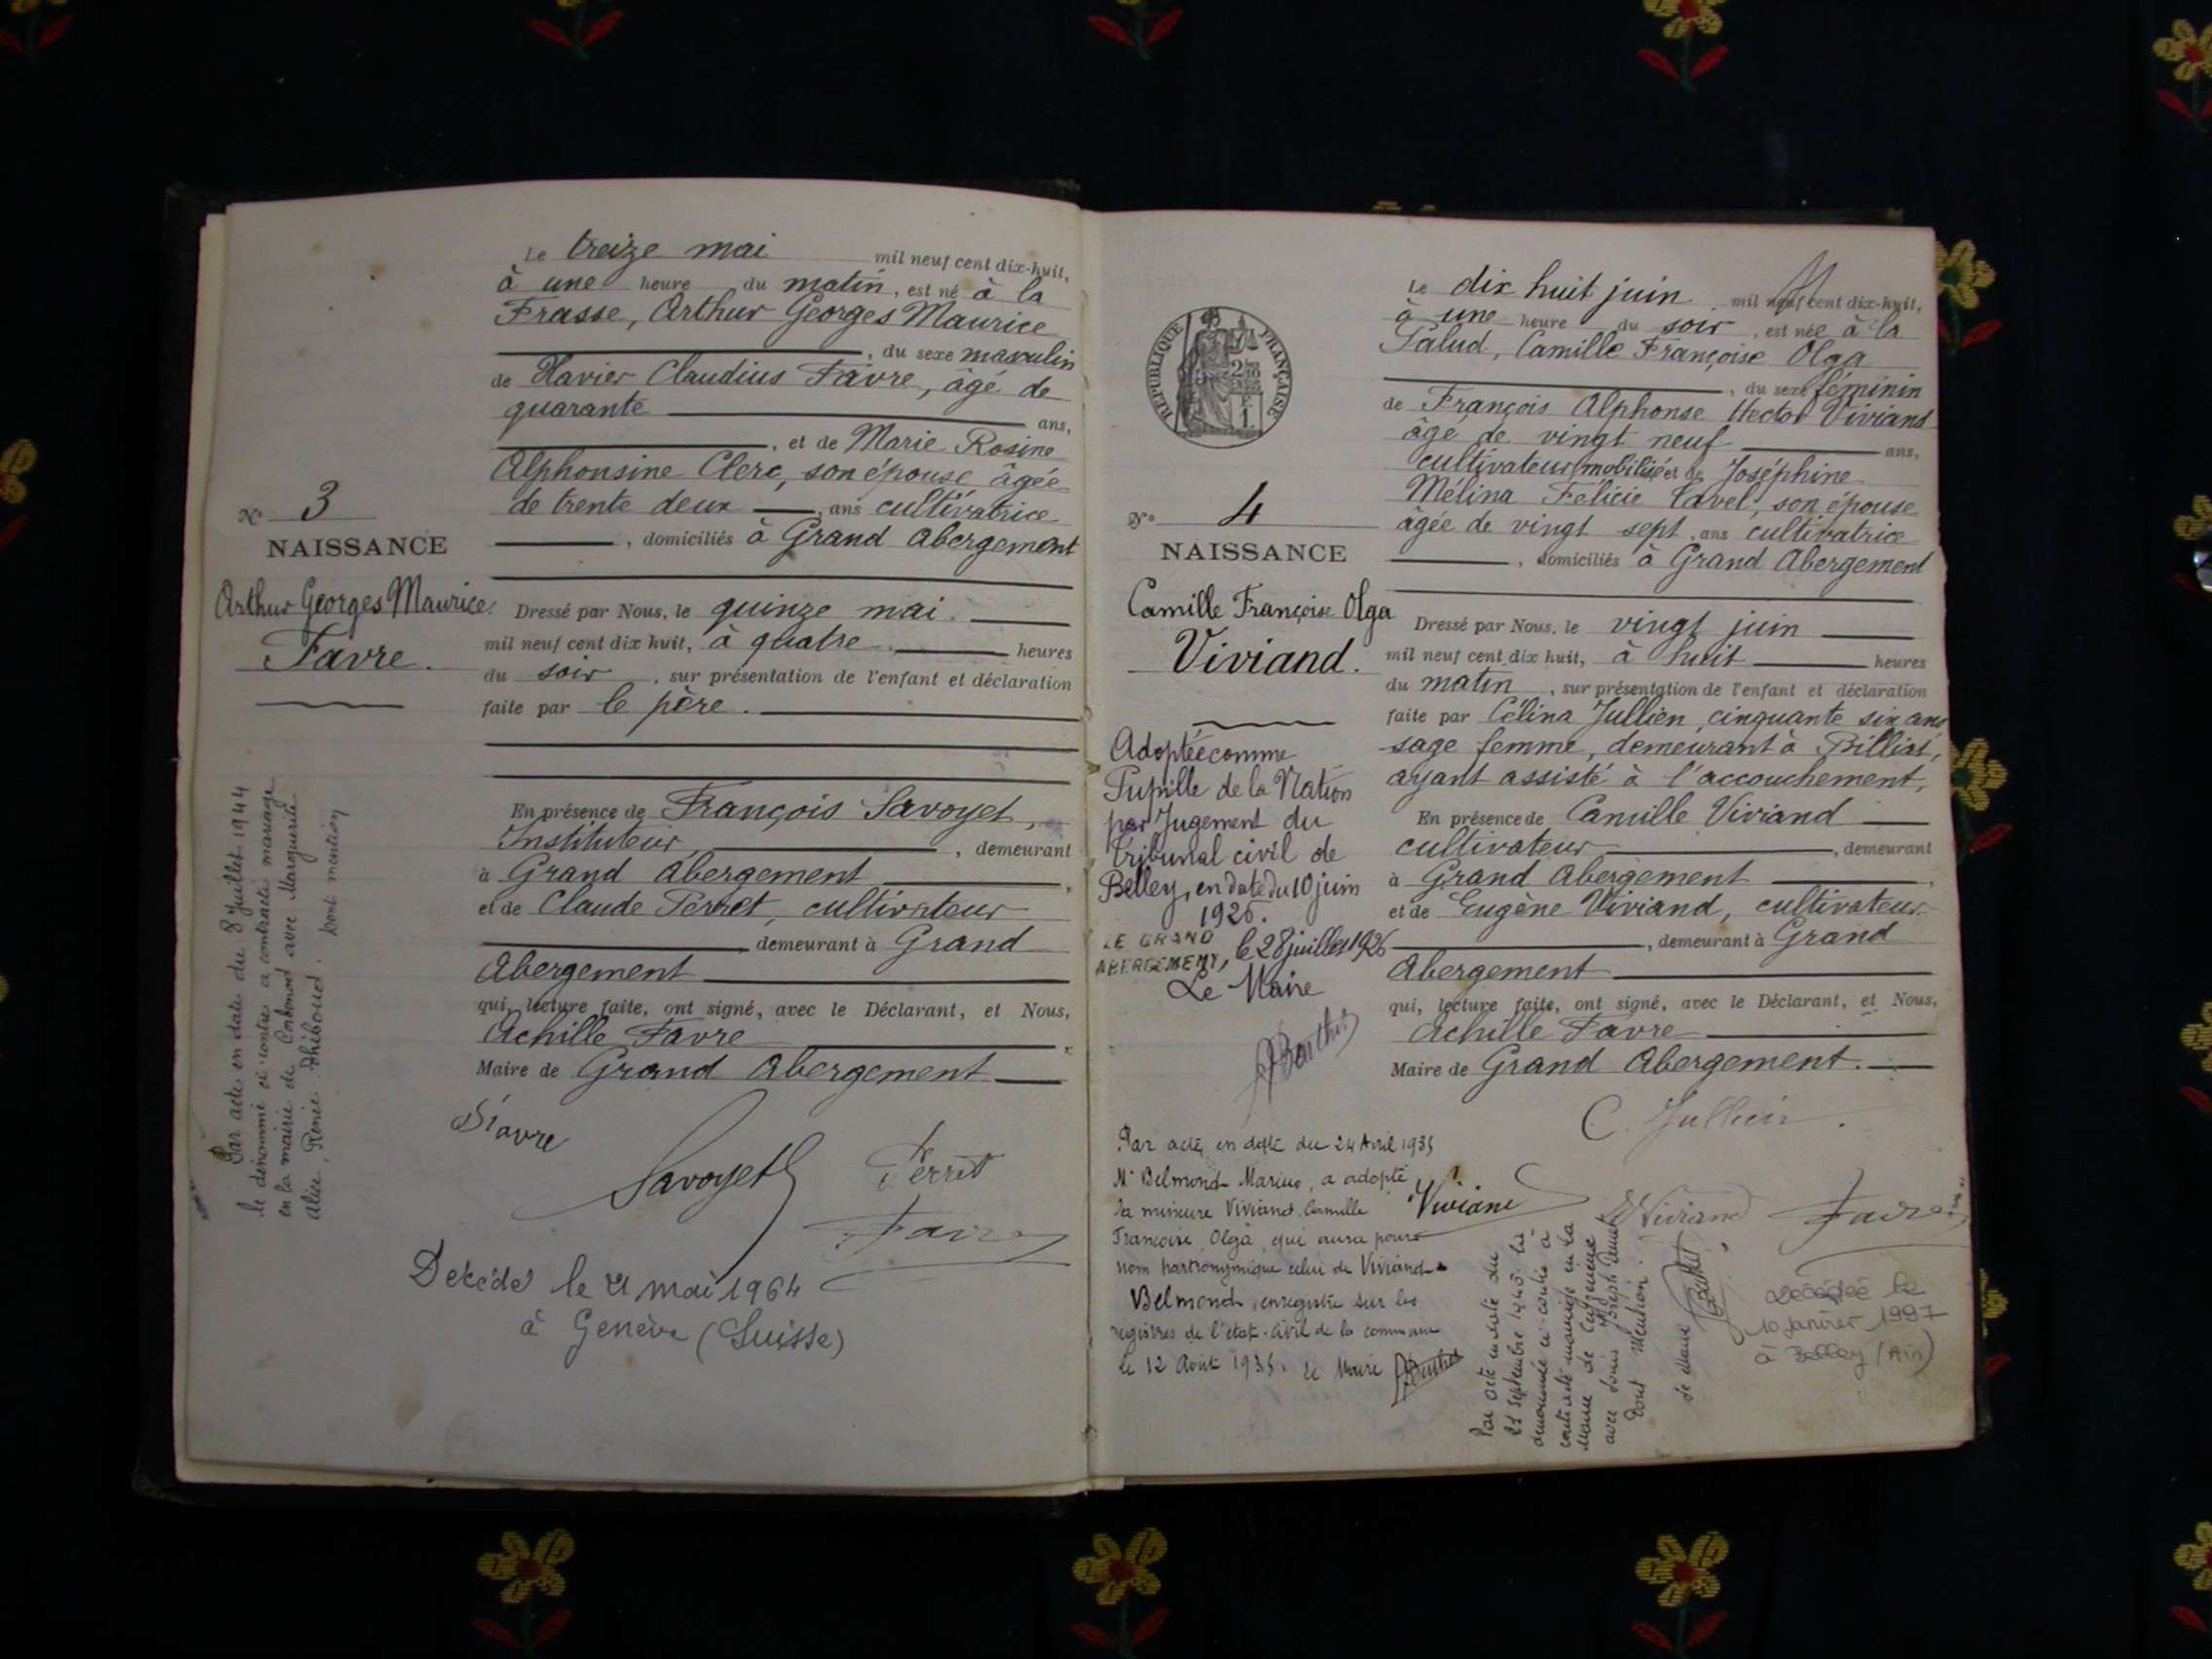 Le treize mai mil neuf cent dix-huit,
à une heure du matin, est né à la
Frasse, Arthur Georges Maurice
, du sexe masculin
de Xavier Claudius Favre, âgé de
quarante ans,
, et de Marie Rosine
Alphonsine Clerc, son épouse âgée
de trente deux ans cultivatrice
, domiciliés à Grand Abergement
Nº 3
NAISSANCE
Arthur Georges Maurice
Favre.
Dressé par Nous, le quinze mai.
mil neuf cent dix huit, à quatre heures
du soir, sur présentation de l'enfant et déclaration
faite par le père.
En présence de François Savoyet,
Instituteur, , demeurant
à Grand Abergement ,
et de Claude Perret, cultivateur
demeurant à Grand
Abergement
qui, lecture faite, ont signé, avec le Déclarant, et Nous,
Achille Favre ,
Maire de Grand Abergement
Par acte en date du 8 Juillet 1944
le dénommé ci-contre a contracté mariage
en la mairie de avec Marguerite
Alice, Renée Thiboud. Dont mention
Favre
Savoyet
Perret
Favre
Décédé le 21 mai 1964
à Genève (Suisse)
RÉPUBLIQUE FRANÇAISE
Le dix huit juin mil neuf cent dix-huit,
à une heure du soir, est née à la
Palud, Camille Françoise Olga
, du sexe féminin
de François Alphonse Hector Viviand
âgé de vingt neuf ans,
cultivateur mobilisé et de Joséphine
Mélina Félicie Cavel, son épouse
âgée de vingt sept, ans cultivatrice
, domiciliés à Grand Abergement
Nº 4
NAISSANCE
Camille Françoise Olga
Viviand.
Dressé par Nous, le vingt juin
mil neuf cent dix huit, à huit heures
du matin, sur présentation de l'enfant et déclaration
faite par Célina Jullien, cinquante six ans
sage femme, demeurant à Billiat,
ayant assisté à l'accouchement,
En présence de Camille Viviand
cultivateur , demeurant
à Grand Abergement ,
et de Eugène Viviand, cultivateur
, demeurant à Grand
Abergement
qui, lecture faite, ont signé, avec le Déclarant, et Nous,
Achille Favre
Maire de Grand Abergement.
Adoptée comme
Pupille de la Nation
par Jugement du
tribunal civil de
Belley, en date du 10 juin
1926.
LE GRAND
ABERGEMENT, le 28 juillet 1926
Le Maire
Par acte en date du 24 Avril 1935
Mr Belmond Marius, a adopté
la mineure Viviand Camille
Françoise Olga qui aura pour
nom patronymique celui de Viviand
Belmond, enregistré sur les
registres de l'état-civil de la commune
le 12 Août 1935. Le Maire
C. Jullien.
Viviand
Viviand
Favre
Par acte en date du
21 septembre 1940 la
dénommée ci-contre à
contracté mariage en la
Mairie de
avec Louis Joseph
Dont Mention.
Le Maire
Décédée le
10 janvier 1997
à Belley (Ain)